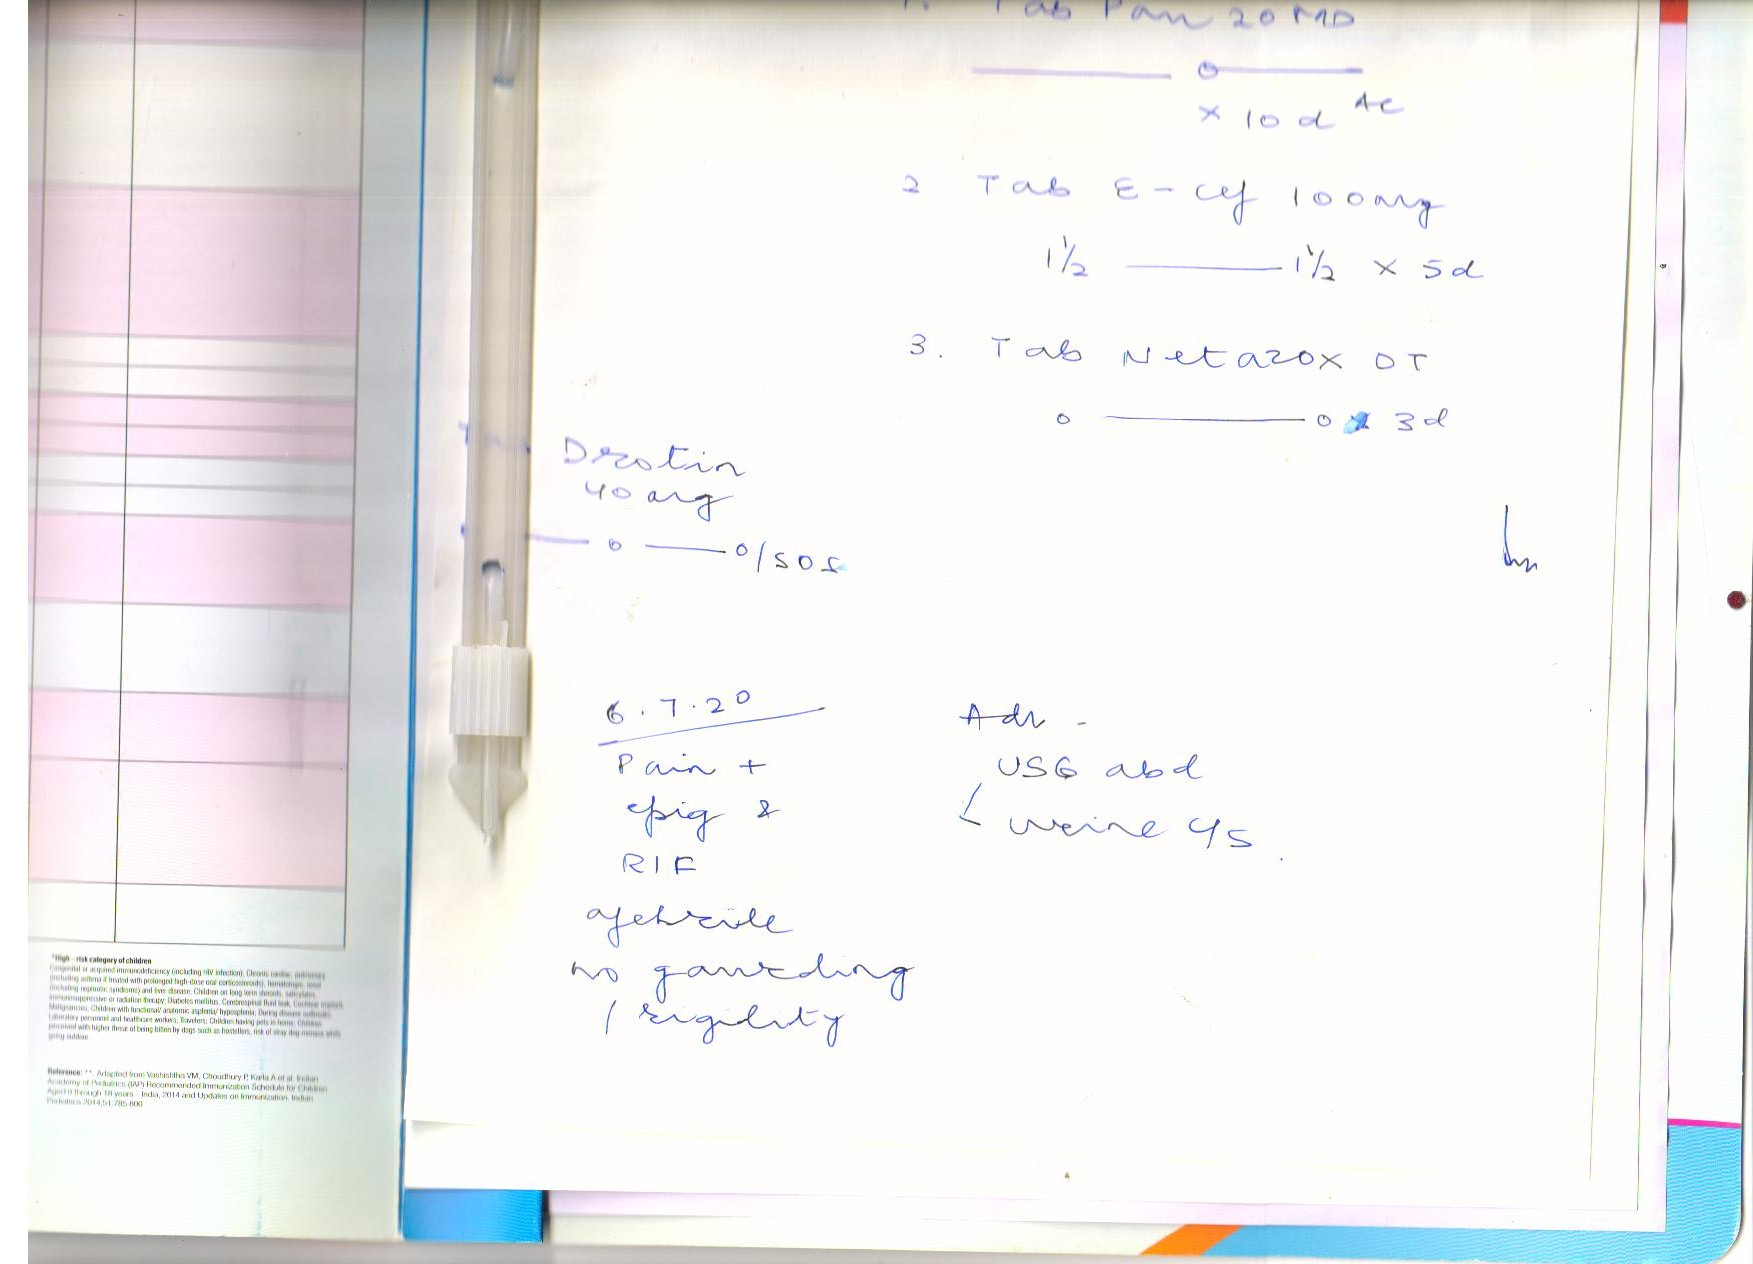 1. Tab Pan 20 MD
o
x 10 d AC
2 Tab E-cef 100mg
1½ — 1½ x 5d
3. Tab Netazox DT
o — o x 3d
Tab Drotin
40 mg
— o — o/SOS
6.7.20
Pain +
epig &
RIF
afebrile
no gaurding
/ rigility
Adv -
USG abd
urine
*High - risk category of children
Congenital or acquired immunodeficiency (including HIV infection); Chronic cardiac, pulmonary
(including asthma if treated with prolonged high-dose oral corticosteroids), hematologic, renal
(including nephrotic syndrome) and liver disease; Children on long term steroids, salicylates,
immunosuppressive or radiation therapy; Diabetes mellitus, Cerebrospinal fluid leak, Cochlear implant,
Malignancies; Children with functional/ anatomic asplenia/ hyposplenia; During disease outbreaks;
Laboratory personnel and healthcare workers; Travelers; Children having pets in home; Children
perceived with higher threat of being bitten by dogs such as hostellers, risk of stray dog menace while
going outdoor.
Reference: ** Adopted from Vashishtha VM, Choudhury P, Kalra A et al. Indian
Academy of Pediatrics (IAP) Recommended Immunization Schedule for Children
Aged 0 through 18 years - India, 2014 and Updates on Immunization. Indian
Pediatrics 2014;51:785-800